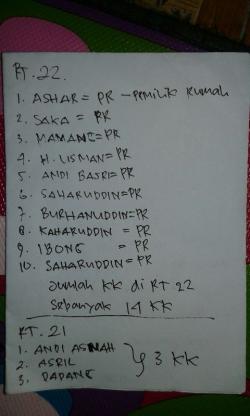 RT. 22.
1. ASHAR = PR - PEMILIK RUMAH
2. SAKA = PR
3. MAMANG = PR
4. H. LISMAN = PR
5. ANDI BASRI = PR
6. SAHARUDDIN = PR
7. BURHANUDDIN = PR
8. KAHARUDDIN = PR
9. IBONG = PR
10. SAHARUDDIN = PR
Jumlah KK di RT 22
Sebanyak 14 KK
RT. 21
1. ANDI ASNAH
2. ASRIL } 3 KK
3. DADANG